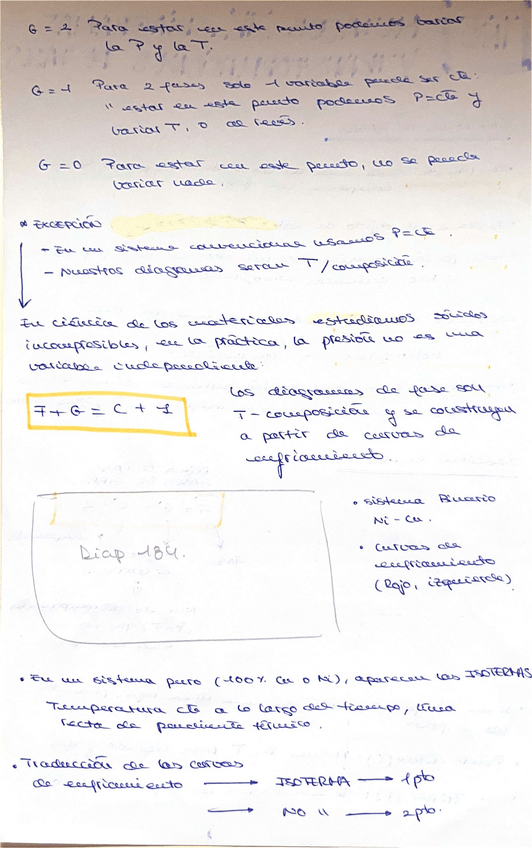 G = 2 Para estar en este punto podemos variar
la P y la T.
G = 1 Para 2 fases solo 1 variable puede ser cte:
" estar en este punto podemos P=cte y
variar T, o al revés.
G = 0 Para estar en este punto, no se puede
variar nada.
* EXCEPCIÓN
- En un sistema convencional usamos P=cte.
- Nuestros diagramas serán T/composición.
En ciencia de los materiales estudiamos sólidos
incompresibles, en la práctica, la presión no es una
variable independiente:
F + G = C + 1
Los diagramas de fase son
T-composición y se construyen
a partir de curvas de
enfriamiento.
Diap 184.
• Sistema Binario
Ni-Cu.
• Curvas de
enfriamiento
(Rojo, izquierda)
• En un sistema puro (100% Cu o Ni), aparecen las ISOTERMAS
Temperatura cte a lo largo del tiempo, línea
recta de pendiente térmico.
• Traducción de las curvas
de enfriamiento → ISOTERMA → 1 pto
→ NO " → 2 pto.